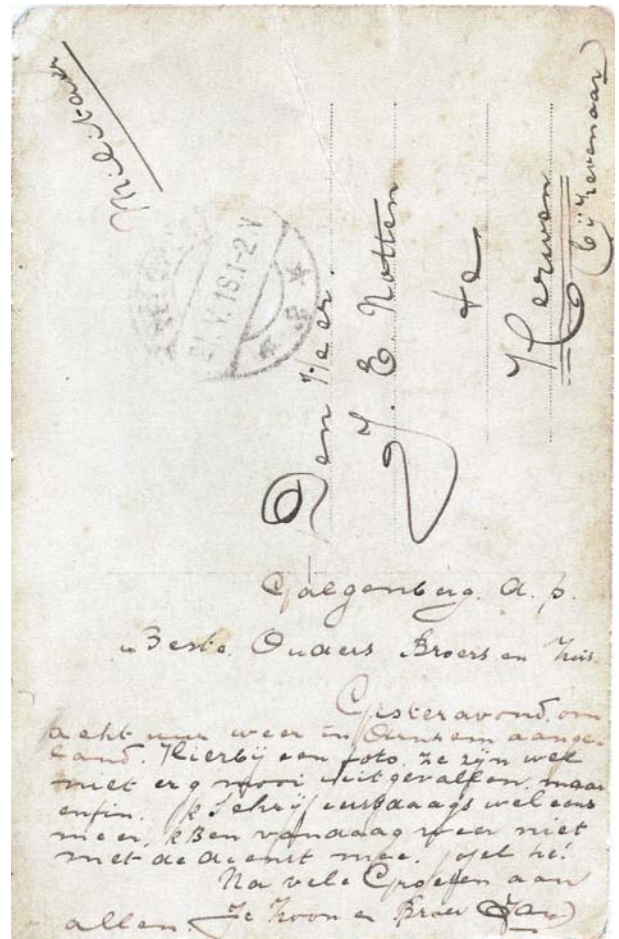 Militair
21.V.18.1-2V
Den Heer.
J. E. Notten
te
Herwen
(bij Zevenaar)
Galgenberg. a. p.
Beste Ouders Broers en Zus.
Gisteravond, om
acht uur weer in Arnhem aange-
land. Hierbij een foto. ze zijn wel
niet erg mooi uitgevallen, maar
enfin. Ik Schrijf eersdaags wel eens
meer, k Ben vandaag weer niet
met de dienst mee. hé!
Na vele Groeten aan
allen. Je Zoon en Broer Jan